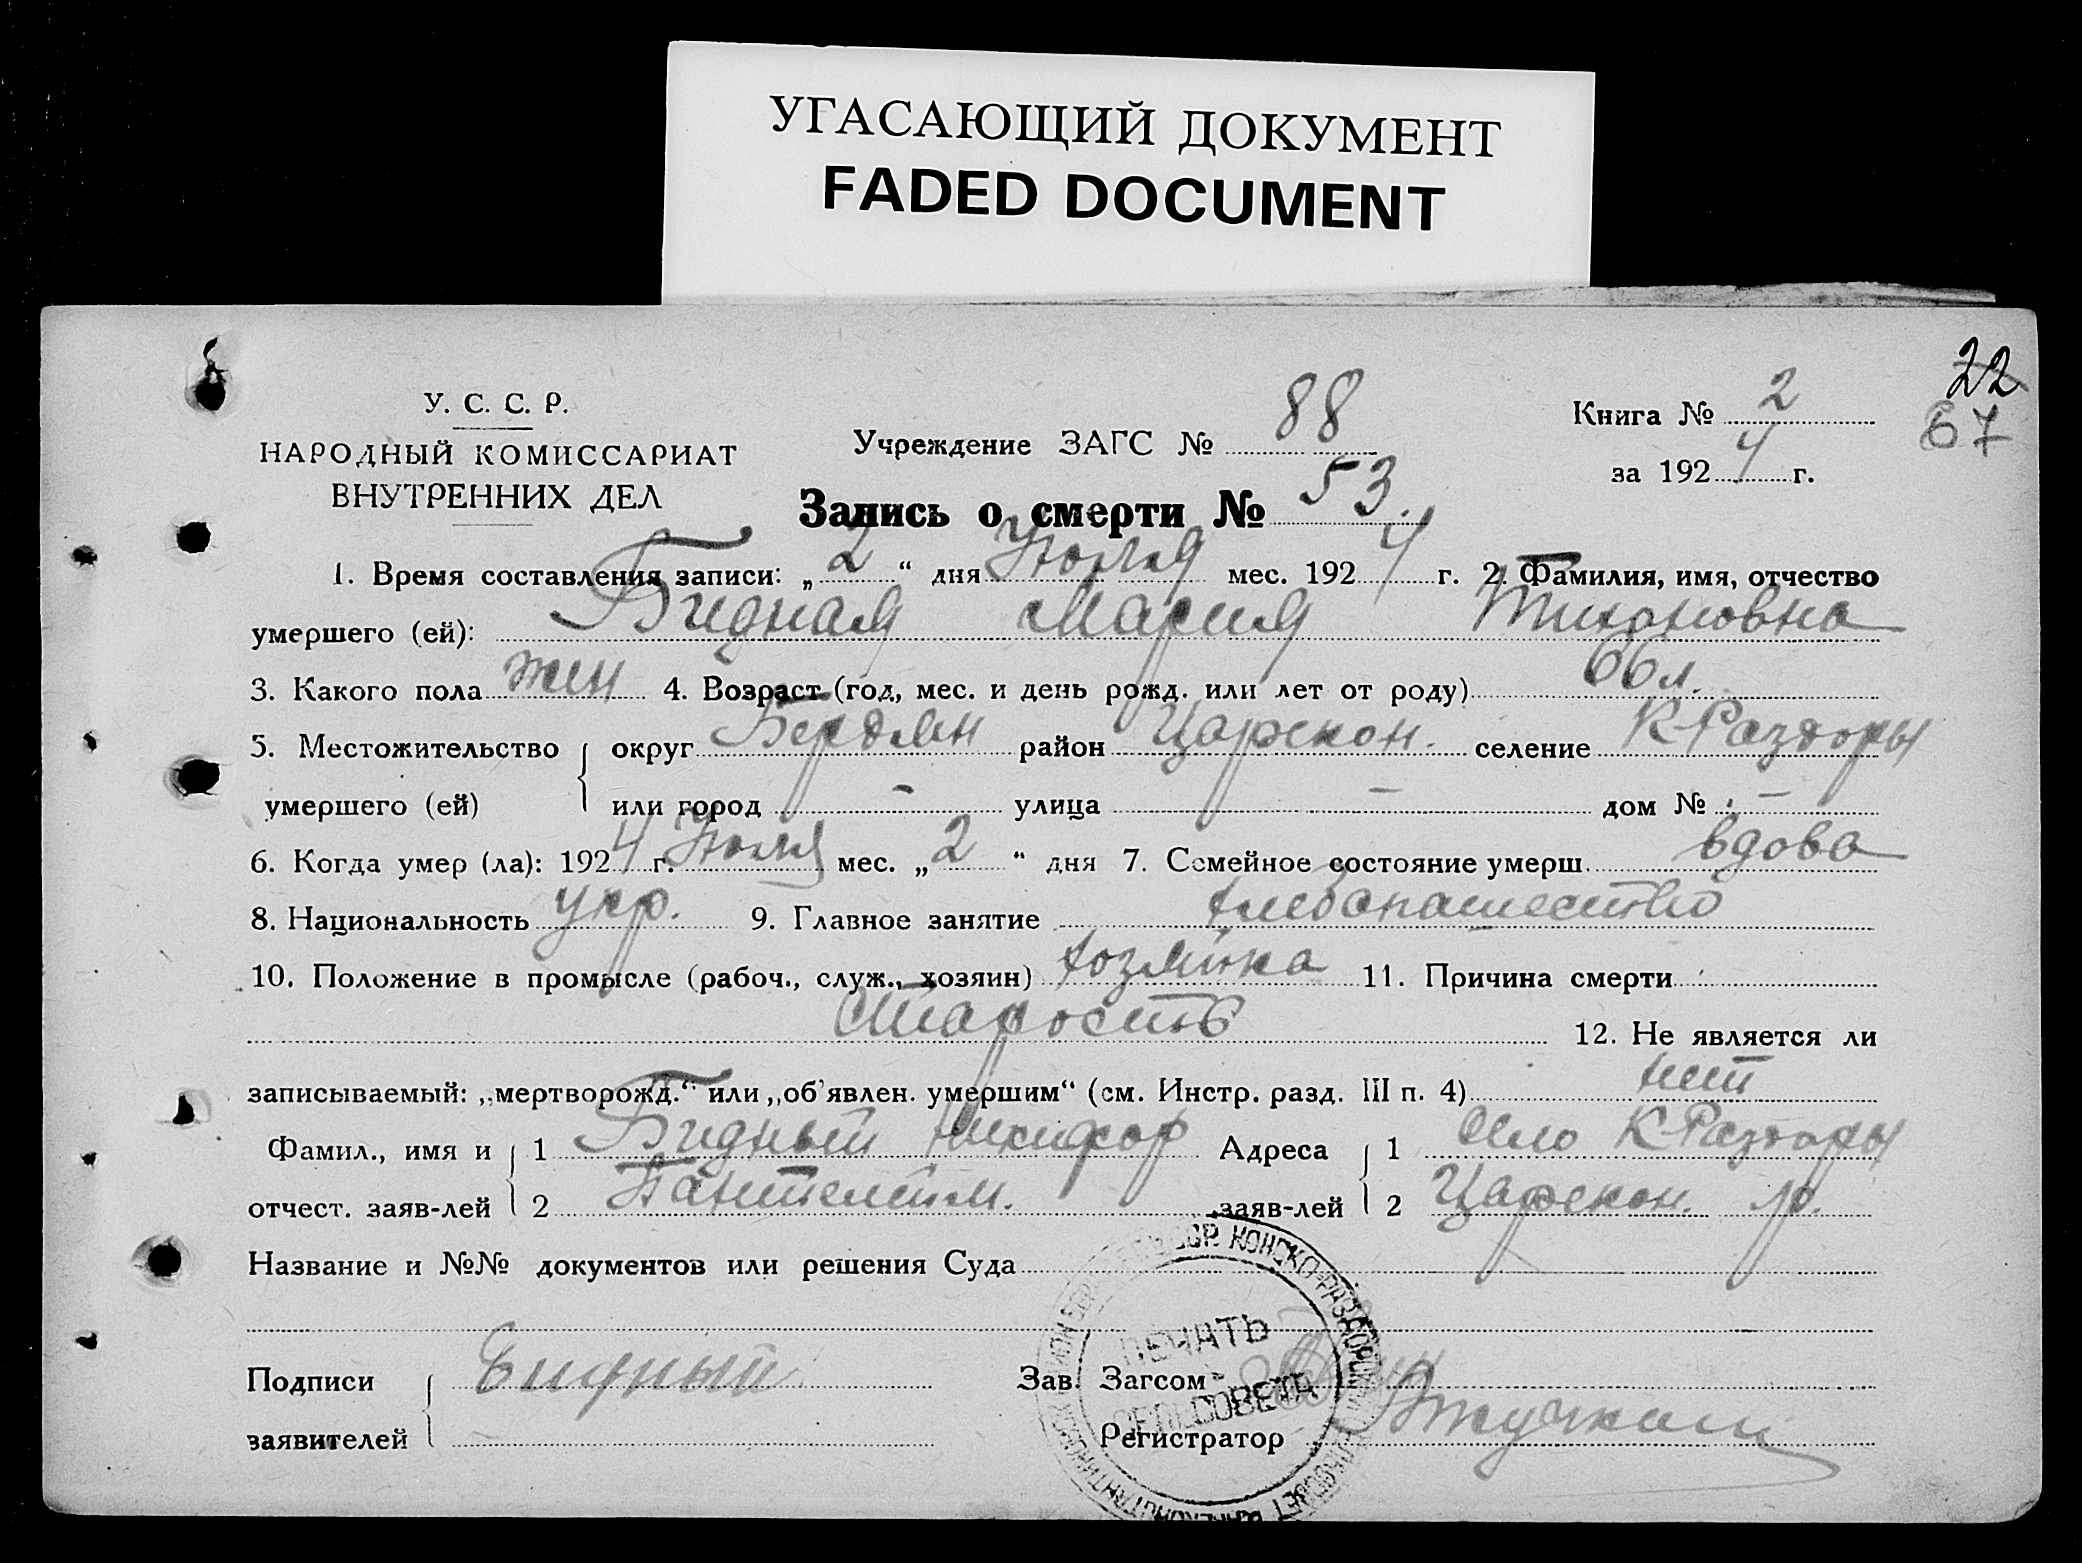 УГАСАЮЩИЙ ДОКУМЕНТ
FADED DOCUMENT
22
67
У. С. С. Р.
НАРОДНЫЙ КОМИССАРИАТ
ВНУТРЕННИХ ДЕЛ
Учреждение ЗАГС № 88
Книга № 2
за 1924 г.
Запись о смерти № 53.
1. Время составления записи: „2“ дня Июля мес. 1924 г. 2. Фамилия, имя, отчество
умершего (ей): Бидная Мария Тихоновна
3. Какого пола жен 4. Возраст (год, мес. и день рожд. или лет от роду) 66 л.
5. Местожительство округ Бердян район Царекон. селение К-Раздоры
умершего (ей) или город - улица - дом № -
6. Когда умер (ла): 1924 г. Июля мес. „2“ дня 7. Семейное состояние умерш. вдова
8. Национальность укр. 9. Главное занятие хлебопашество
10. Положение в промысле (рабоч., служ., хозяин) хозяйка 11. Причина смерти
Старость 12. Не является ли
записываемый: „мертворожд.“ или „об'явлен. умершим“ (см. Инстр. разд. III п. 4) нет
Фамил., имя и 1 Бидный Никифор Адреса 1 Село К-Раздоры
отчест. заяв-лей 2 Пантелейм. заяв-лей 2 Царекон. р.
Название и №№ документов или решения Суда
Подписи Бидный Зав. Загсом
заявителей Регистратор
КОНСКО-РАЗДОРСК
ПЕЧАТЬ
СЕЛЬСОВЕТА